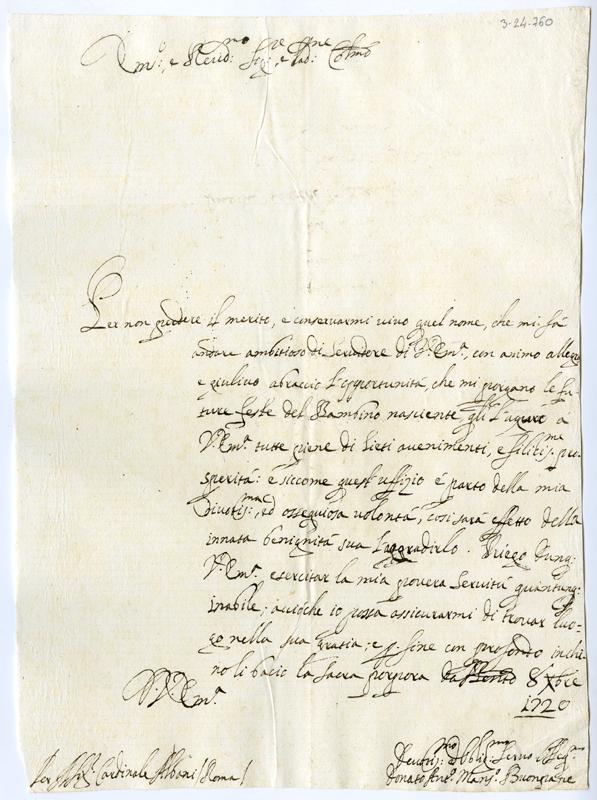 3-24-760
Em:º, e Reud:mo Sig:re, e Pad:ne Col:mo
Per non perdere il merito, e conseruarmi uiuo quel nome, che mi fà
andare ambitioso di Seruitore di V:ª Em:ª, con animo allegro
e giuliuo abraccio l'opportunità, che mi porgano le fu-
ture feste del Bambino nascente gli l'auguro à
V:ª Em:ª tutte piene di lieti auenimenti, e filicis:me pro-
sperità: e siccome quest'uffizio è parto della mia
diuotis:ma, ed ossequiosa uolontà, cosi sarà effetto della
innata benignità sua l'aggradirlo. Priego dunq:
V:ª Em:ª esercitar la mia pouera seruitù quantunq:
inabile; acioche io possa assicurarmi di trouar luo-
go nella sua gratia; e p. fine con profondo inchi-
no li bacio la sacra porpora 8 Xbre
1720
D. V:ª Em:ª
Deuotis:mo Obblig:mo Seruo Osseq:mo
Donato Ant:º Mars:
Sig: Cardinale Albani (Roma)